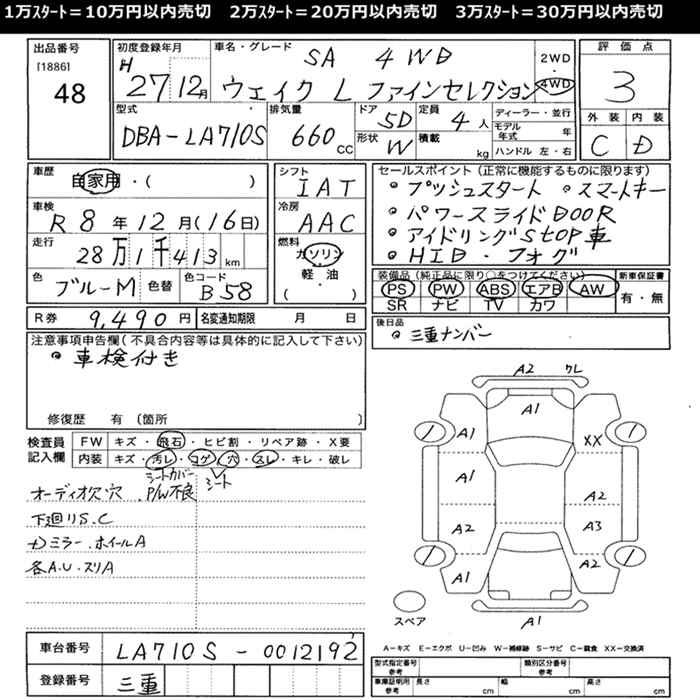 1万ｽﾀｰﾄ＝10万円以内売切　2万ｽﾀｰﾄ＝20万円以内売切　3万ｽﾀｰﾄ＝30万円以内売切
出品番号
[1886]
48
初度登録年月
H 27 12月
車名・グレード
SA 4WD
ウェイク L ファインセレクション
2WD
・
4WD
評価点
3
型式
DBA-LA710S
排気量
660 CC
ドア
5D
形状
W
定員
4人
積載
kg
ディーラー・並行
モデル年式 年
ハンドル 左・右
外装 内装
C D
車歴
自家用・( )
車検
R 8 年 12 月 (16日)
走行
28万1千413 km
色
ブルーM
色替
色コード
B58
シフト
IAT
冷房
AAC
燃料
ガソリン
軽・油
( )
セールスポイント (正常に機能するものに限ります)
・プッシュスタート ・スマートキー
・パワースライドDOOR
・アイドリングStOP車
・HID・フォグ
装備品(純正品に限り○をつけてください)
PS PW ABS エアB AW
SR ナビ TV カワ
新車保証書
有・無
R券 9,490円
名変通知期限 月 日
後日品
・三重ナンバー
注意事項申告欄(不具合内容等は具体的に記入して下さい)
・車検付き
修復歴 有 (箇所 )
検査員記入欄
FW キズ・飛石・ヒビ割・リペア跡・X要
内装 キズ・汚レ・コゲ・穴・スレ・キレ・破レ
シートカバー シート
オーディオ欠・穴 P/W不良
下廻りS.C
ミラー・ホイールA
各A.U.スリA
A2 クレ
A1
A1 XX
A1 A2
A2 A3
A1 A2
A1
スペア
A－キズ E－エクボ U－凹み W－補修跡 S－サビ C－腐食 XX－交換済
車台番号 LA710S-0012192
登録番号 三重
型式指定番号 参考
類別区分番号 参考
車庫証明用 参考
長さ cm 幅 cm 高さ cm